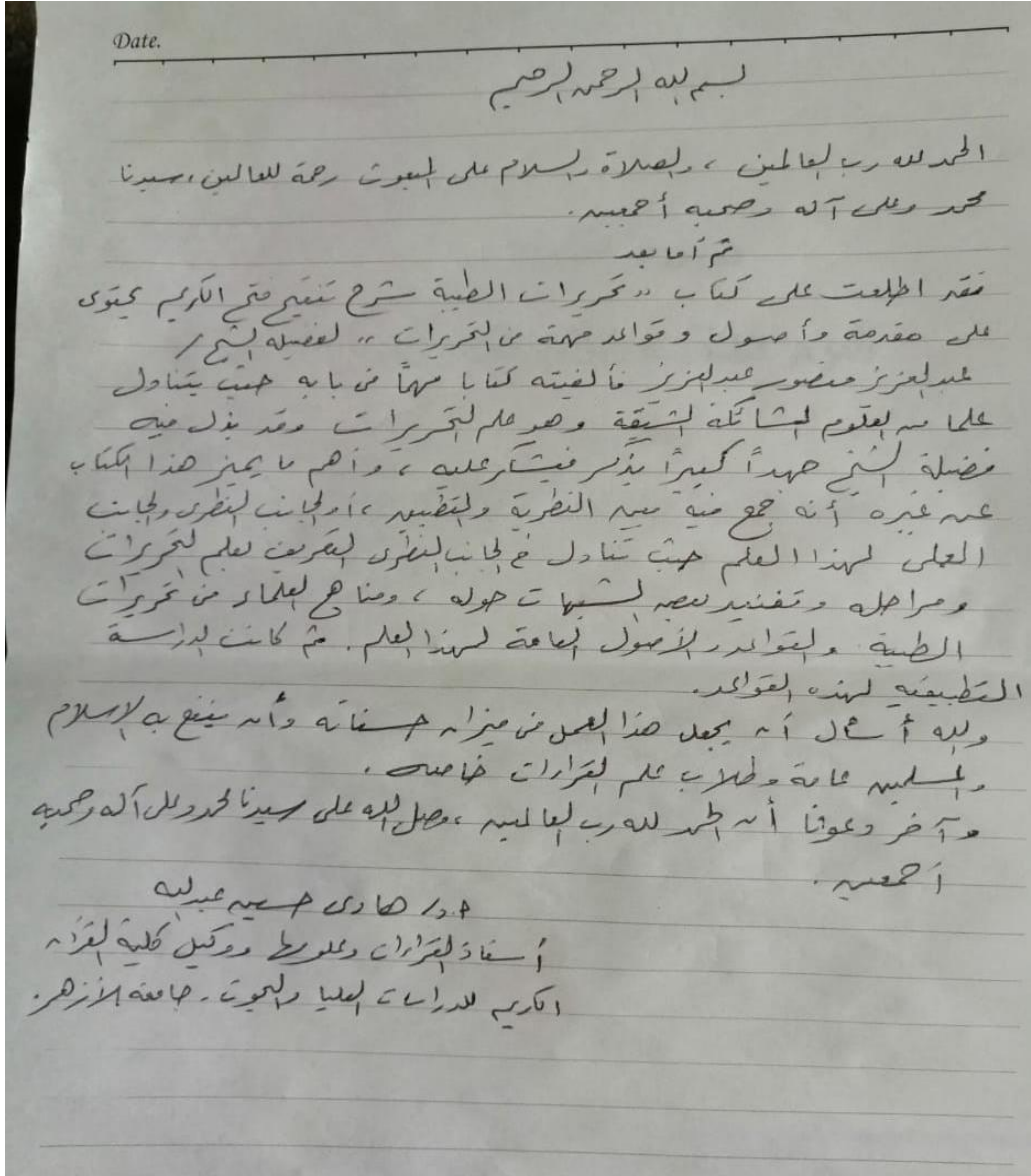 Date.
بسم الله الرحمن الرحيم
الحمد لله رب العالمين ، والصلاة والسلام على المبعوث رحمة للعالمين ، سيدنا
محمد وعلى آله وصحبه أجمعين .
ثم أما بعد
فقد اطلعت على كتاب " تحريرات الطيبة شرح تنقيح فتح الكريم يحتوى
على مقدمة وأصول وقواعد مهمة من التحريرات " لفضيلة الشيخ /
عبد العزيز منصور عبد العزيز فألفيته كتابا مهماً فى بابه حيث يتناول
علما من العلوم الشائكة الشيقة وهو علم التحريرات وقد بذل فيه
فضيلة الشيخ جهداً كبيراً يذكر فيشكر عليه ، وأهم ما يميز هذا الكتاب
عن غيره أنه جمع فيه بين النظرية والتطبيق ، أو الجانب النظرى والجانب
العملى لهذا العلم حيث تناول فى الجانب النظرى التعريف بعلم التحريرات
ومراحله وتفنيد بعض الشبهات حوله ، ومناهج العلماء فى تحريرات
الطيبة والقواعد والأصول العامة لهذا العلم . ثم كانت الدراسة
التطبيقية لهذه القواعد .
والله أسأل أن يجعل هذا العمل فى ميزان حسناته وأن ينفع به الإسلام
والمسلمين عامة وطلاب علم القراءات خاصة .
وآخر دعوانا أن الحمد لله رب العالمين ، وصل الله على سيدنا محمد وعلى آله وصحبه
أجمعين .
أ.د/ هادى حسين عبد الله
أستاذ القراءات وعلومها ووكيل كلية القرآن
الكريم للدراسات العليا والبحوث . جامعة الأزهر .